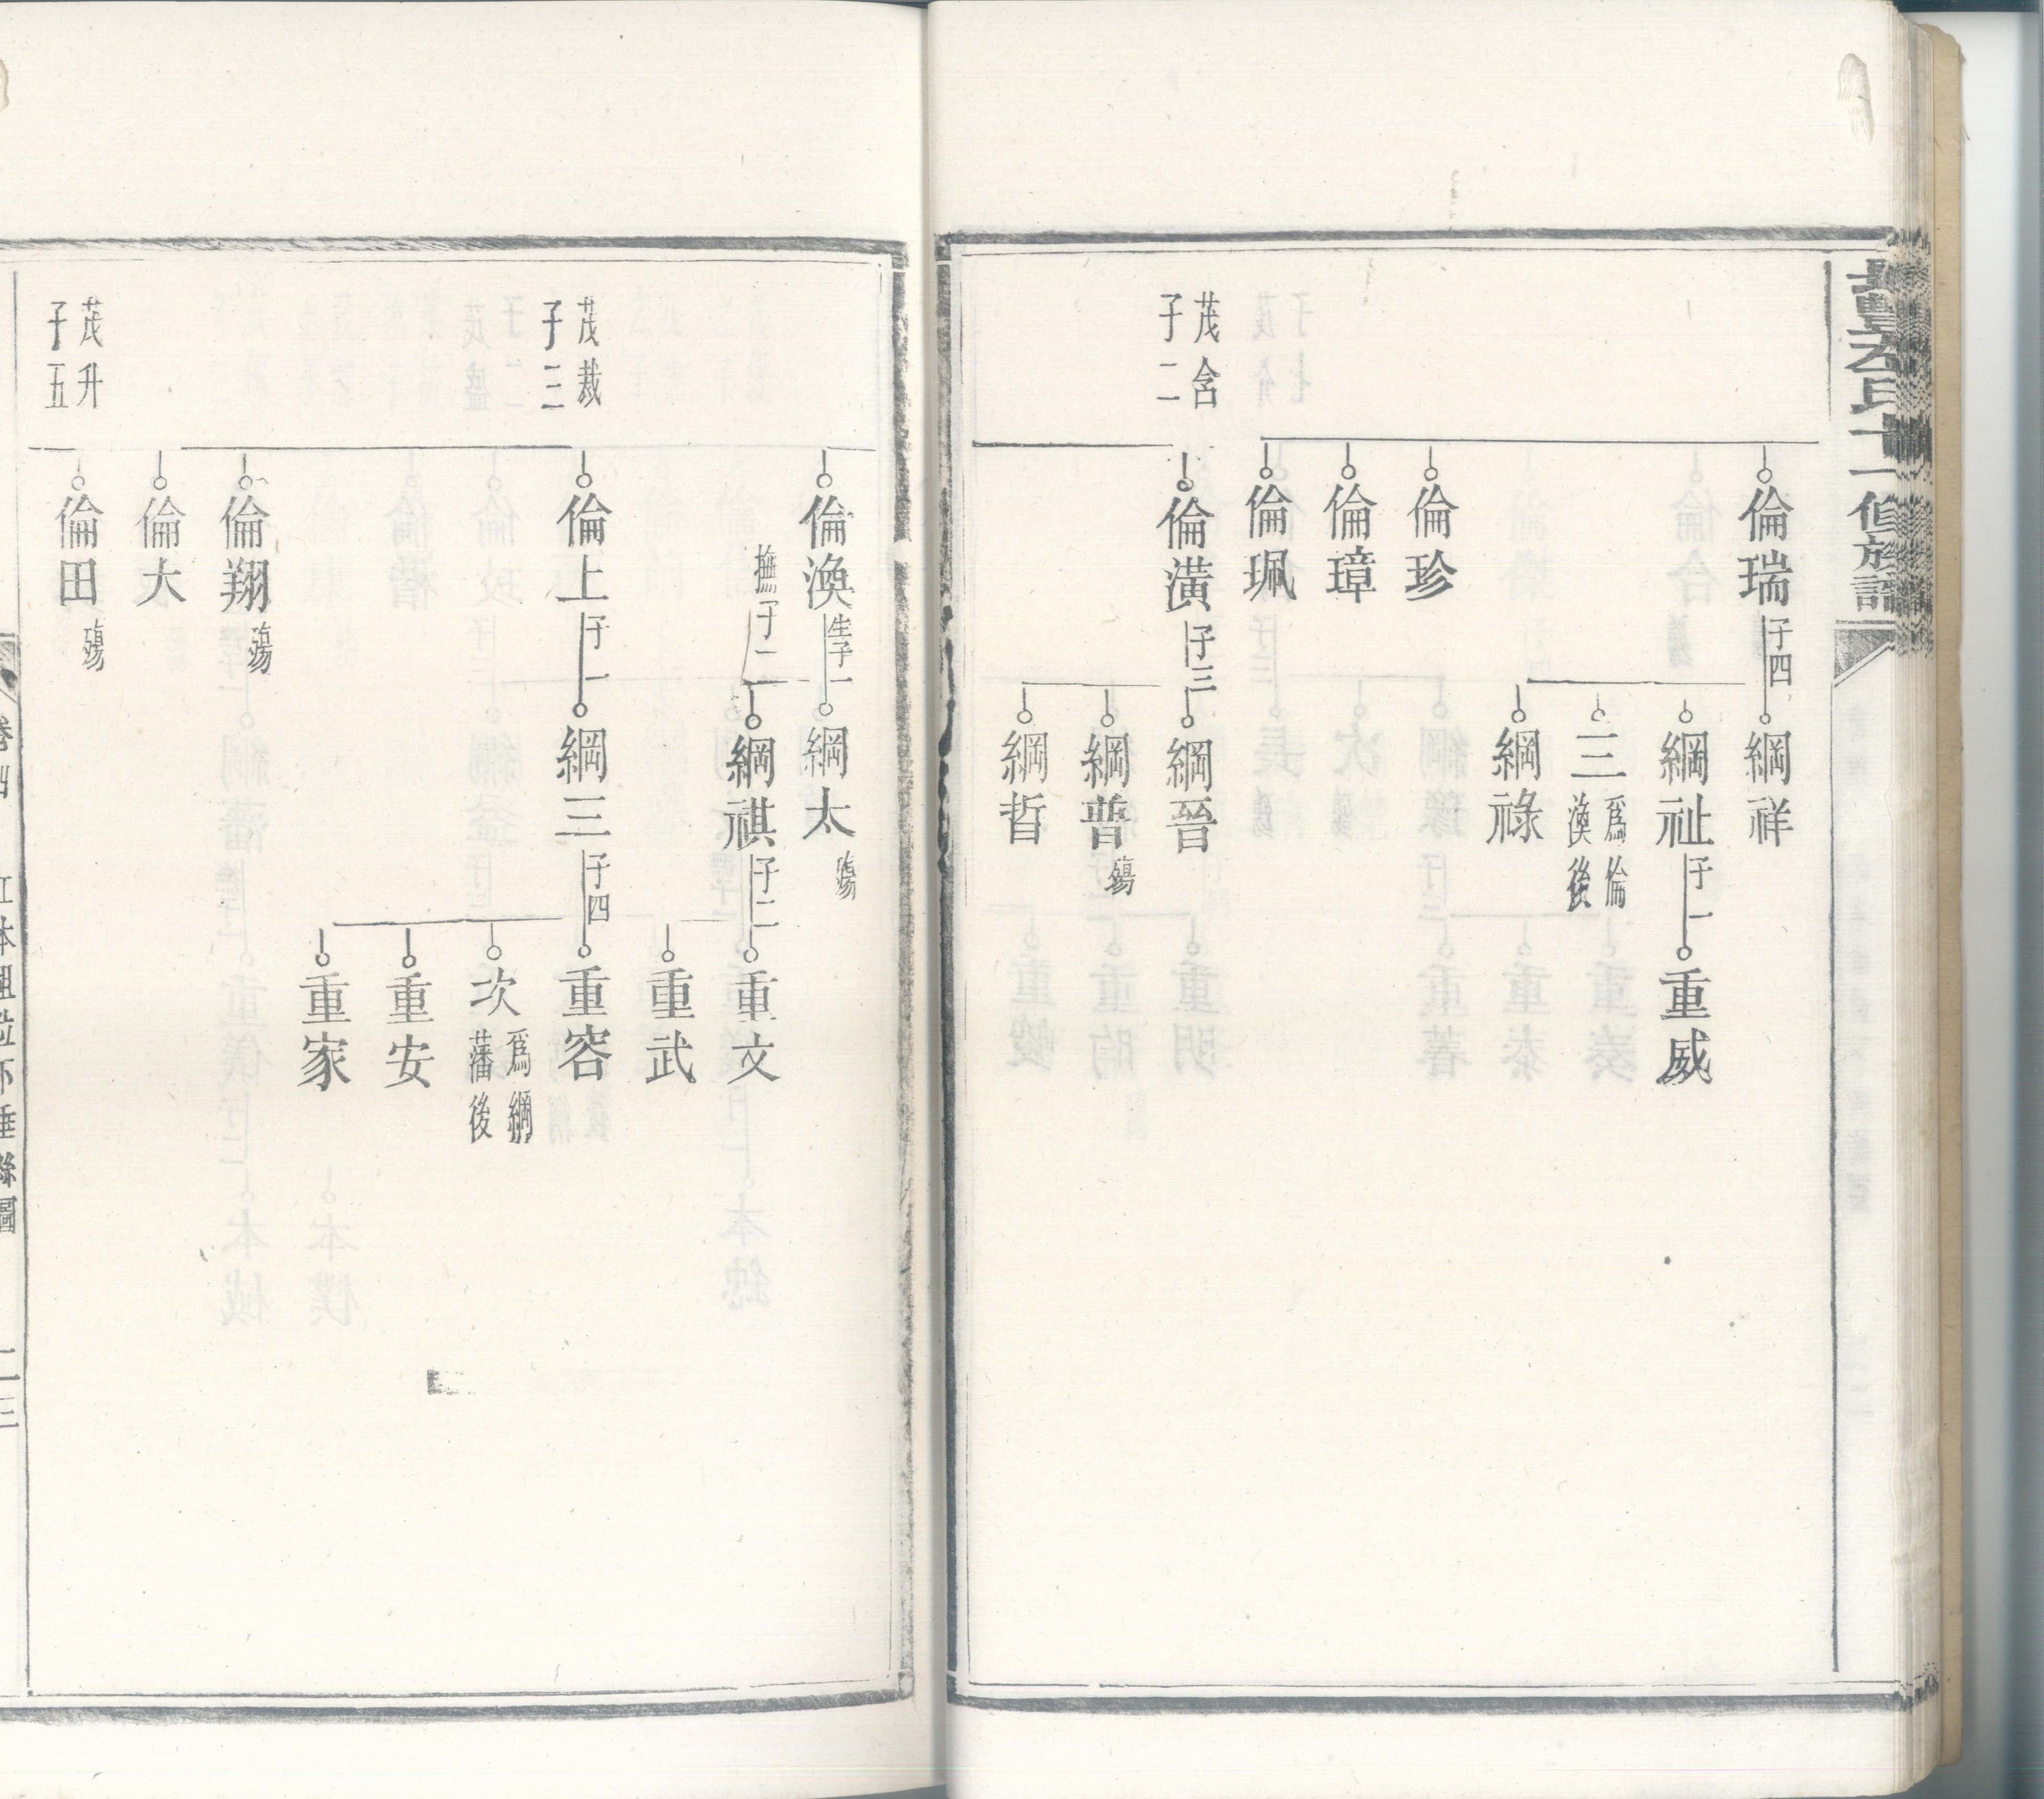 氏十一修族譜
倫瑞 子四
綱祥
綱祉 子一
重威
三 爲倫渙後
綱祿
倫珍
倫璋
倫珮
茂含
子二
倫潢 子三
綱晉
綱普 殤
綱哲
倫渙 生子一 撫子一
綱太 殤
綱祺 子二
重文
重武
茂裁
子三
倫上 子一
綱三 子四
重容
次 爲綱藩後
重安
重家
倫翔 殤
倫大
茂升
子五
倫田 殤